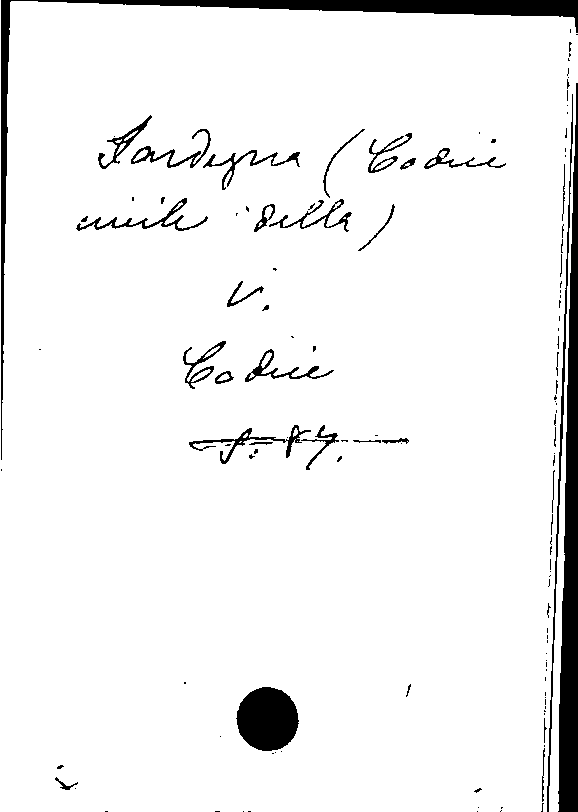 Sardegna (Codice
civile della)
V.
Codice
S. 87.